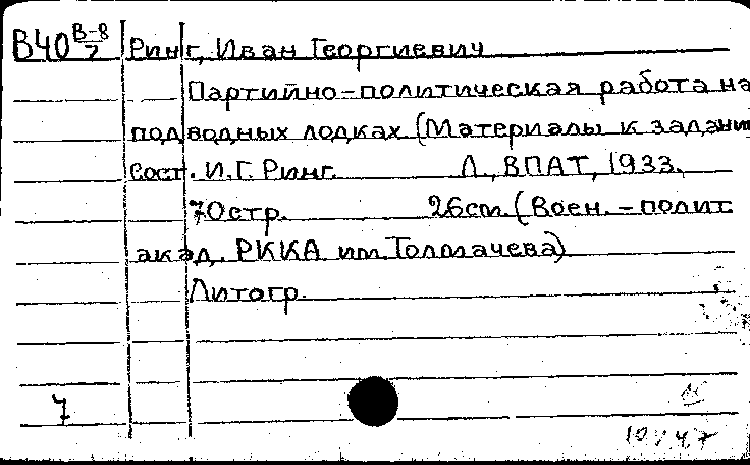 В40 В-8/7 Ринг, Иван Георгиевич
Партийно-политическая работа на
подводных лодках (Материалы к задани
Сост. И.Г. Ринг. Л., ВПАТ, 1933.
70стр. 26см. (Воен.-полит.
акад. РККА им. Толмачева)
Литогр.
7